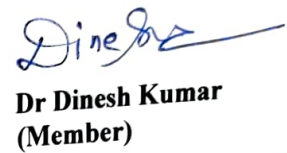 Dinesh
Dr Dinesh Kumar
(Member)